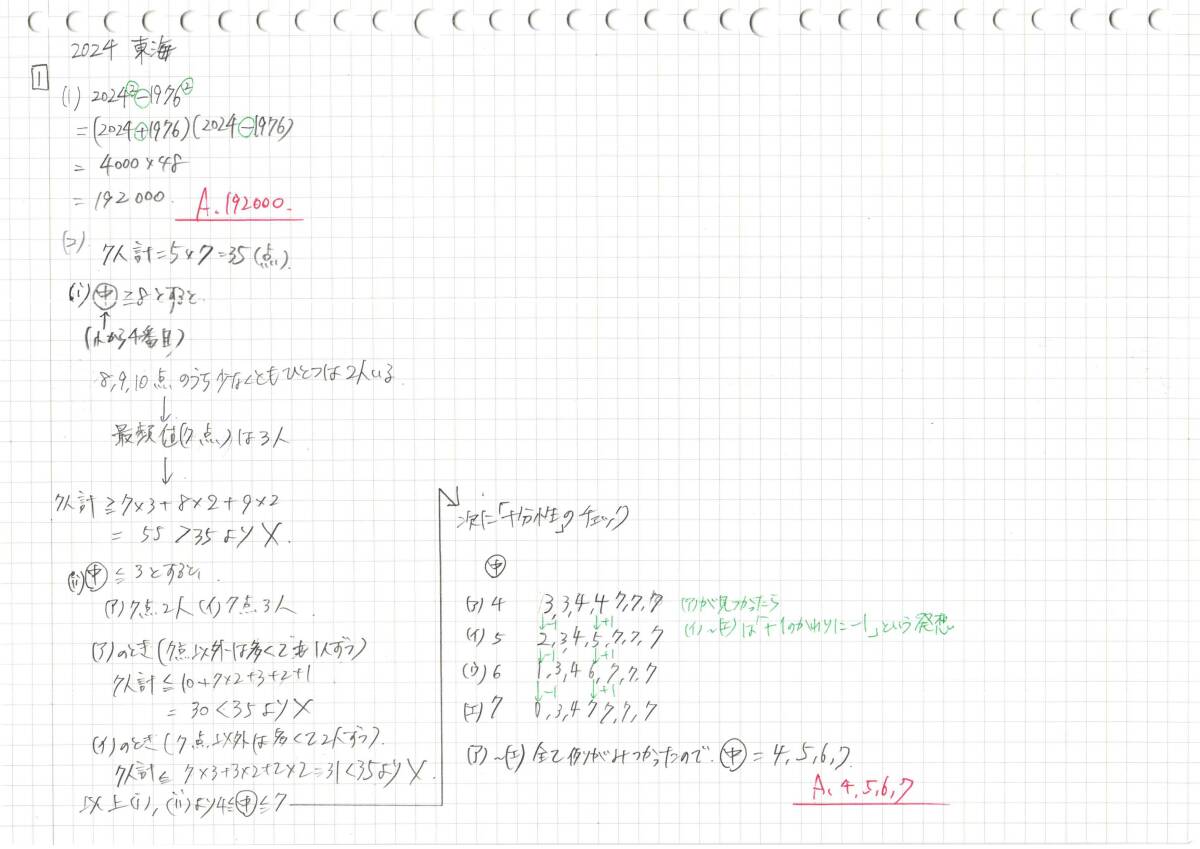 2024 東海
1
(1) 2024²-1976²
=(2024+1976)(2024-1976)
= 4000×48
= 192000. A. 192000.
(2) 7人計=5×7=35(点).
(i) 中≧8とすると
↑
(小から4番目)
8,9,10点のうち少なくともひとつは2人いる
↓
最頻値(7点)は3人
↓
7人計≧7×3+8×2+9×2
= 55 >35より×.
(ii) 中≦3とすると,
(ア)7点2人(イ)7点3人
(ア)のとき(7点以外は多くても1人ずつ)
7人計≦10+7×2+3+2+1
= 30<35より×
(イ)のとき(7点以外は多くて2人ずつ).
7人計≦ 7×3+3×2+2×2=31<35より×.
以上(i),(ii)より4≦中≦7
次に「十分性」のチェック
中
(ア) 4 3,3,4,4 7,7,7 (ア)が見つかったら
↓-1 ↓+1 (イ)~(エ)は「+1のかわりに-1」という発想.
(イ) 5 2,3,4,5,7,7,7
↓-1 ↓+1
(ウ) 6 1,3,4 6,7,7,7
↓-1 ↓+1
(エ) 7 0,3,4 7 7,7,7
(ア)~(エ)全て例がみつかったので.中=4,5,6,7.
A. 4,5,6,7